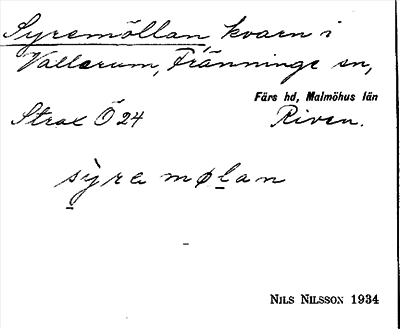 Syremöllan kvarn i
Vallarum, Fränninge sn,
Färs hd, Malmöhus län
Strax Ö 24 Riven.
sỳra mølan
Nils Nilsson 1934